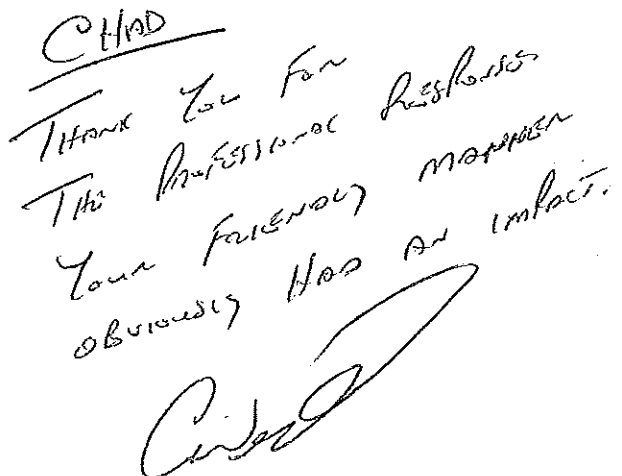 CHAD
THANK YOU FOR
THE PROFESSIONAL RESPONSE
YOUR FRIENDLY MANNER
OBVIOUSLY HAD AN IMPACT.